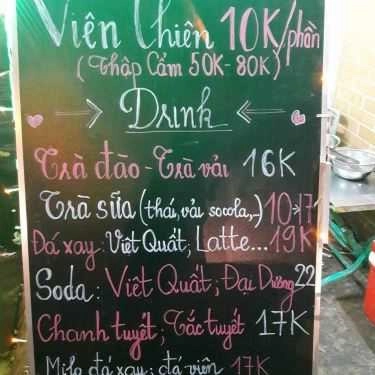 Viên Chiên 10K/phần
(Thập Cẩm 50K-80K)
Drink
Trà đào - Trà vải 16K
Trà sữa (thái, vải socola,...) 10→17
Đá xay: Việt Quất; Latte... 19K
Soda: Việt Quất; Đại Dương 22
Chanh tuyết; Tắc tuyết 17K
Milo đá xay; đá viên 17K